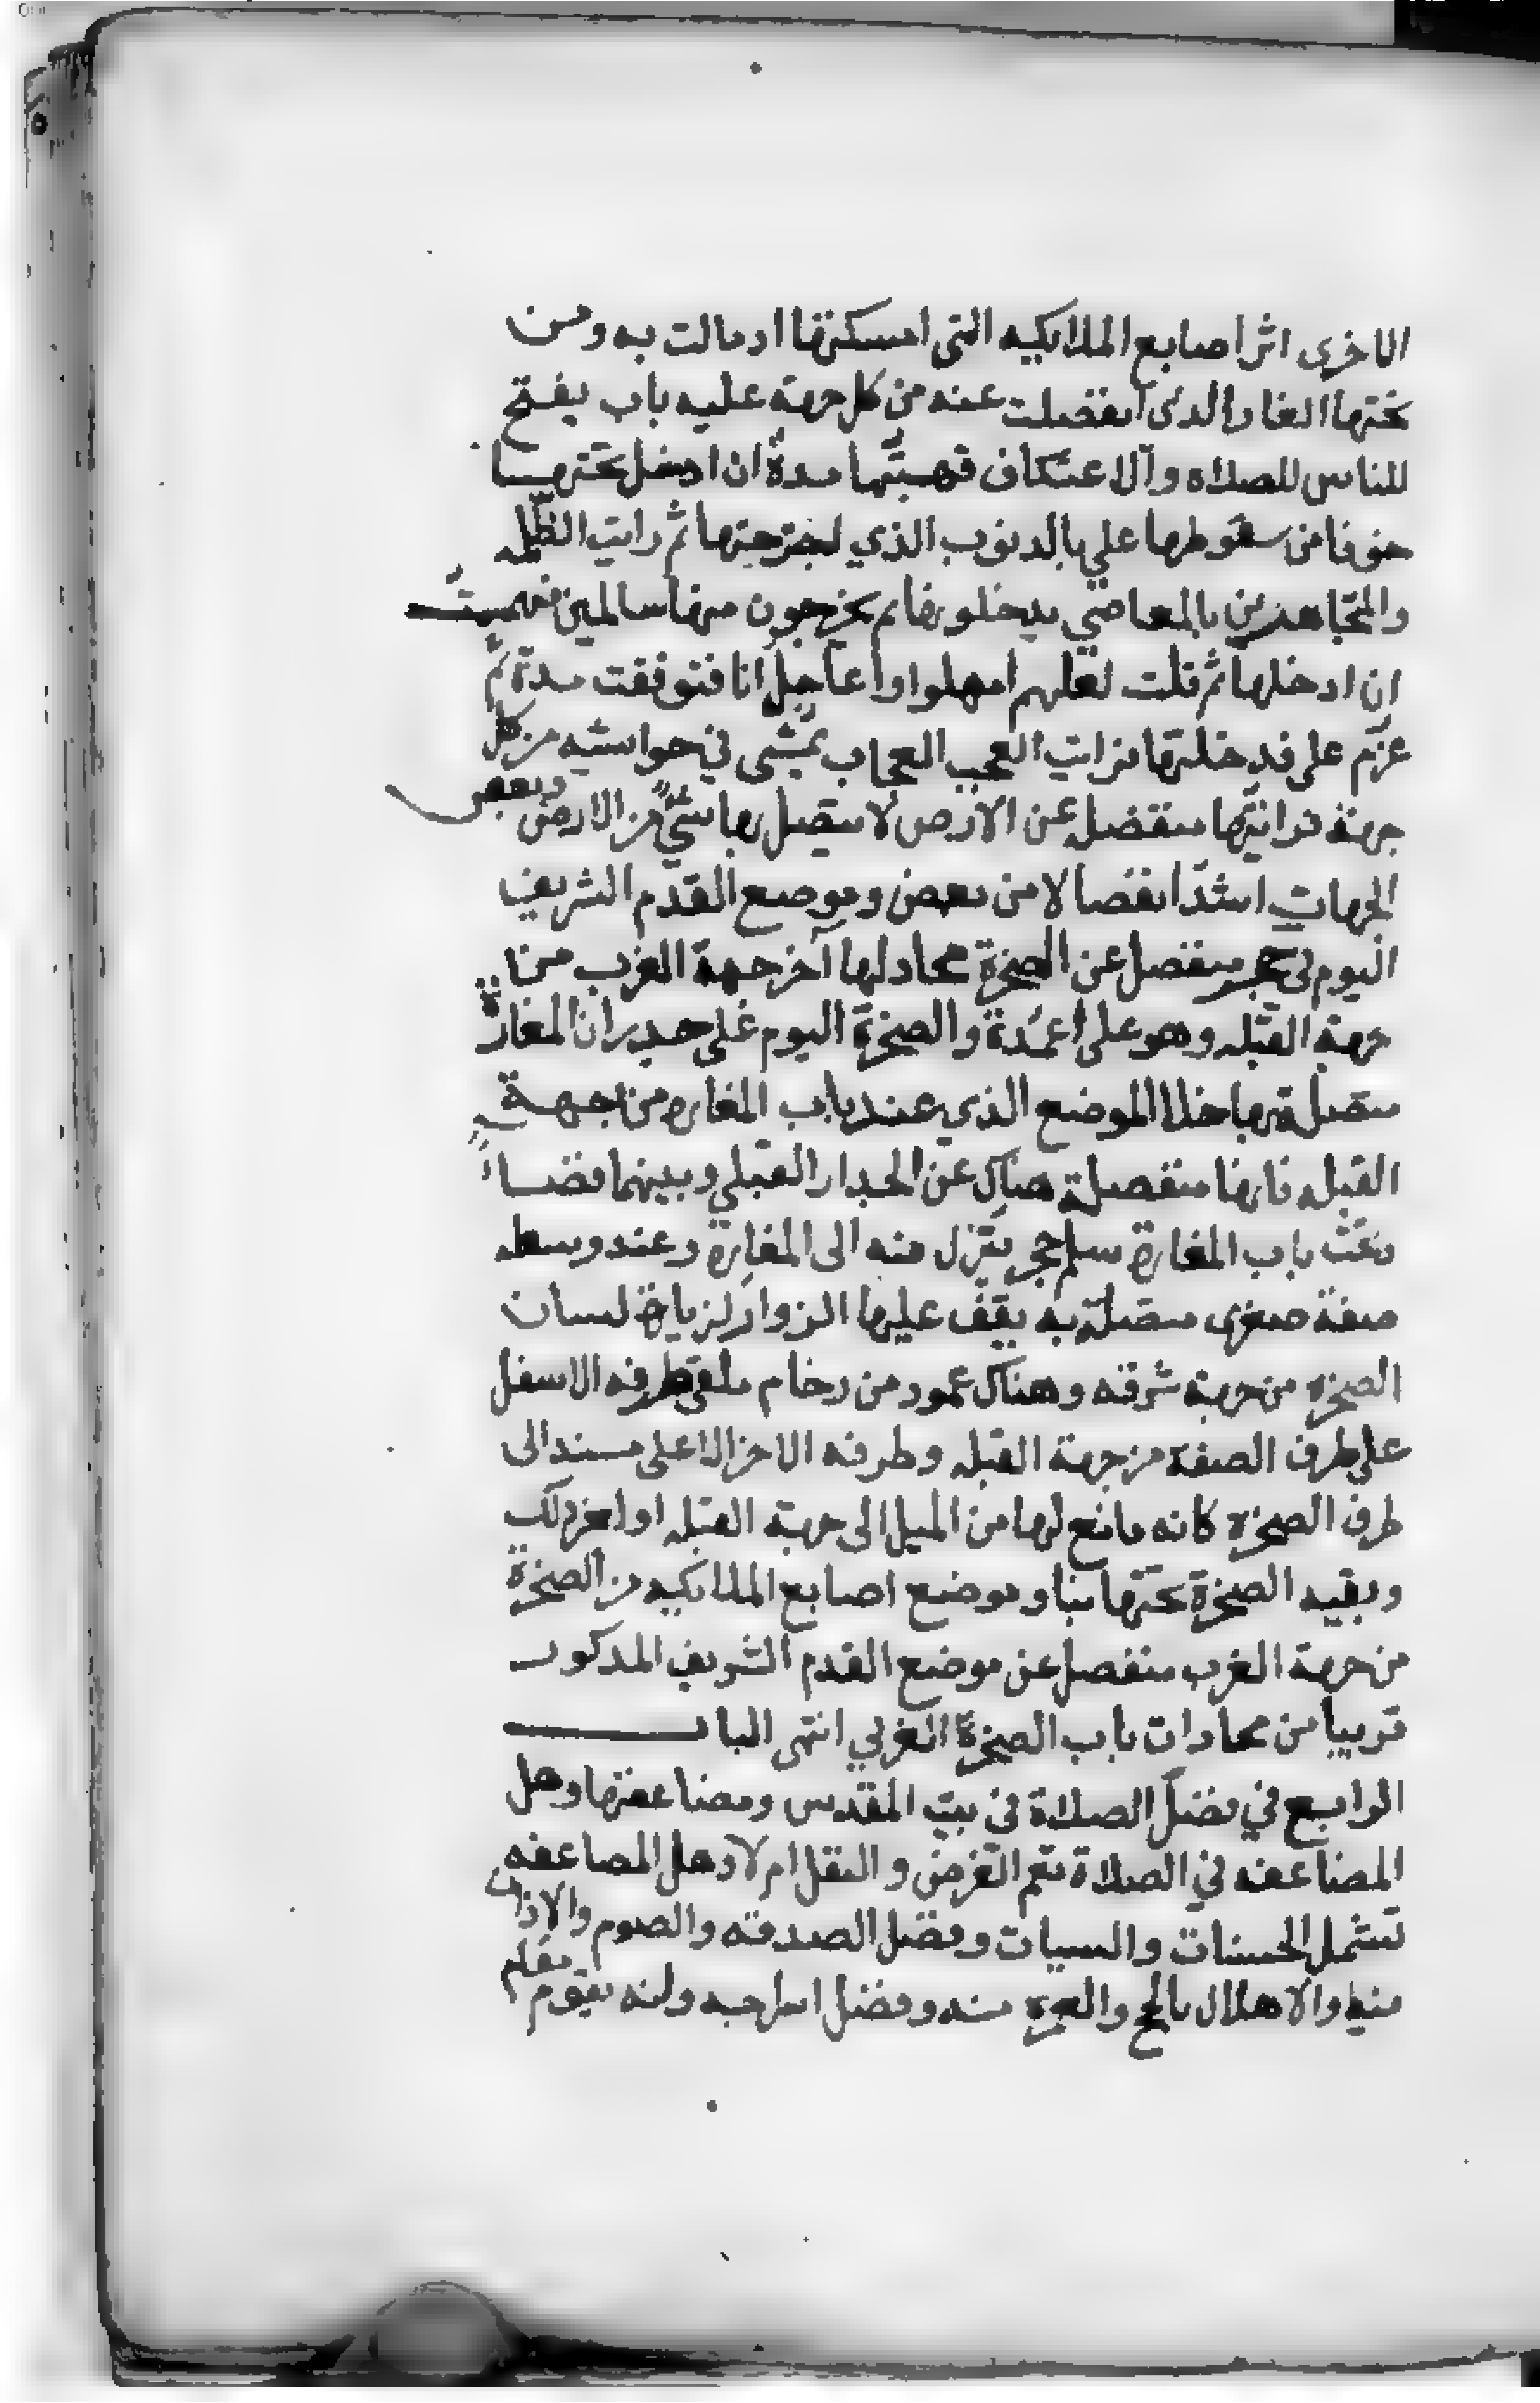 الاخرى اثر اصابع الملايكيه التي امسكتها اد مالت به ومن
تحتها الغار الدى انفصلت عنه من كل جهة عليه باب يفتح
للناس للصلاه والاعتكاف فهبتها مدة ان ادخل تحتها
خوفا من سقوطها علي بالدنوب الذي اجترحتها ثم رايت الظلمه
والمتجاهدين بالمعاصي يدخلونها ثم يخرجون منها سالمين فهممت
ان ادخلها ثم قلت لعلهم امهلوا واعاجل انا فتوقفت مدة ثم
عزم على فدخلتها فرايت العجب العجاب تمشى في حواشيه من كل
جهة فرايتها منفصله عن الارض لا يتصل بها شيء من الارض وبعض
الجهات اشد انفصالا من بعض وموضع القدم الشريف
اليوم في حجر منفصل عن الصخرة محاد لها آخر جهة الغرب من
جهة القبله وهو على اعمدة والصخرة اليوم على جدران المغارة
متصلة بها خلا الموضع الذي عند باب المغاره من جهة
القبله فانها منفصلة هناك عن الجدار القبلي وبينهما فضاء
تحت باب المغارة سلم حجر ينزل منه الى المغارة وعند وسطه
صفة صغرى متصلة به يقف عليها الزوار لزيارة لسان
الصخره من جهة شرقه وهناك عمود من رخام ملقى طرفه الاسفل
على طرف الصفة من جهة القبله وطرفه الاخر الاعلى مسند الى
طرف الصخره كانه مانع لها من الميل الى جهة القبله او لغير دلك
وبقيه الصخرة تحتها بنا وموضع اصابع الملايكيه من الصخرة
من جهة الغرب منفصل عن موضع القدم الشريف المدكور
قريبا من محادات باب الصخرة الغربي انتهى الباب
الرابع في فضل الصلاة في بيت المقدس ومضاعفتها وهل
المضاعفه في الصلاة تعم الفرض والنفل ام لا وهل المضاعفه
تشمل الحسنات والسيات وفضل الصدقه والصوم والاذان
فيه والاهلال بالحج والعمره منه وفضل اسراجه وانه يقوم مقام